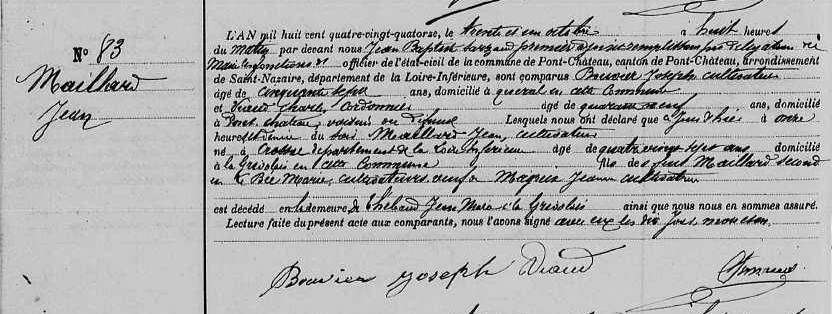 N° 83
Maillard
Jean
L'AN mil huit cent quatre-vingt-quatorze, le trente et un octobre à huit heures
du matin par devant nous Jean Baptiste premier adjoint remplissant par délégation les
fonctions d' officier de l'état-civil de la commune de Pont-Château, canton de Pont-Château, arrondissement
de Saint-Nazaire, département de la Loire-Inférieure, sont comparus Bouvier Joseph cultivateur
âgé de cinquante sept ans, domicilié à en cette commune
et Viaud Charles Cordonnier âgé de quarante neuf ans, domicilié
à Pont-Château, voisins du défunt Lesquels nous ont déclaré que d'hier à onze
heures du soir Maillard Jean, cultivateur
né à Crossac département de la Loire Inférieure âgé de quatre vingt sept ans domicilié
à la Grivolais en cette Commune fils de feus Maillard
et Le Bec Marie, cultivateurs, veuf de Jeanne cultivatrice
est décédé en la demeure de Thébaud Jean Marc à la Grivolais ainsi que nous nous en sommes assuré.
Lecture faite du présent acte aux comparants, nous l'avons signé avec eux les dits jour mois et an.
Bouvier Joseph Viaud